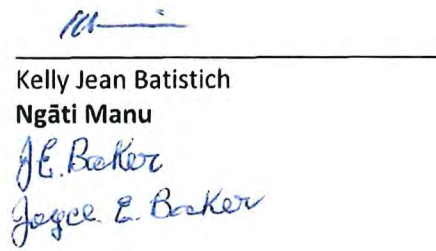 Kelly Jean Batistich
Ngāti Manu
J E. Baker
Joyce E. Baker